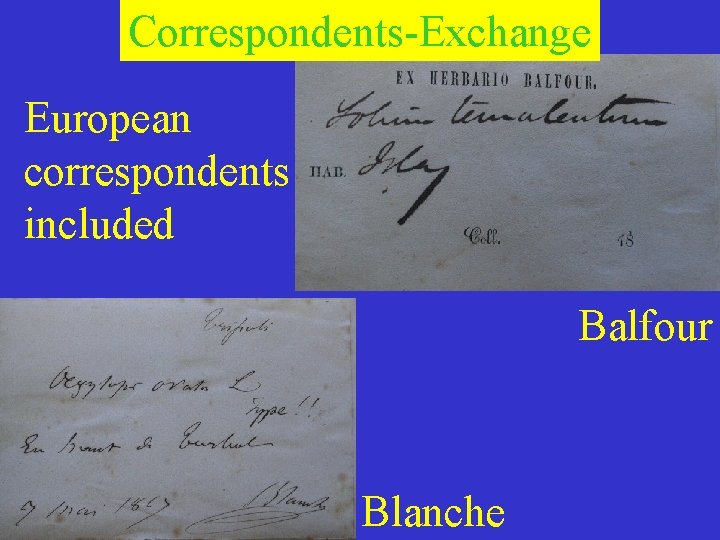 Correspondents-Exchange
European
correspondents
included
EX HERBARIO BALFOUR.
Lolium temulentum
HAB. Islay
Coll. 18
Balfour
Tripoli
Aegylops ovata L
type!!
En haut de
7 mai 1867
Blanche
Blanche